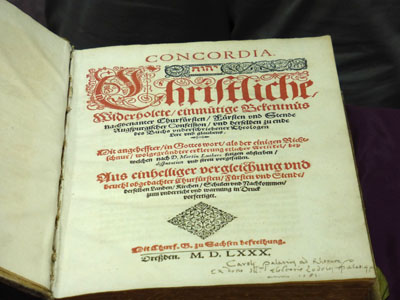 CONCORDIA.
Christliche,
Widerholete, einmütige Bekentnüs
nachbenanter Churfürsten, Fürsten und Stende
Augspurgischer Confession, und derselben zu ende
des Buchs underschriebener Theologen
Lere und glaubens.
Mit angeheffter, in Gottes wort, als der einigen Richt-
schnur, wolgegründter erklerung etlicher Artickel, bey
welchen nach D. Martin Luthers seligen absterben,
disputation und streit vorgefallen.
Aus einhelliger vergleichung und
bevehl obgedachter Churfürsten, Fürsten und Stende,
derselben Landen, Kirchen, Schulen und Nachkommen,
zum underricht und warnung in Druck
vorfertiget.
Mit Churf. G. zu Sachsen befreihung.
Dreßden. M. D. LXXX.